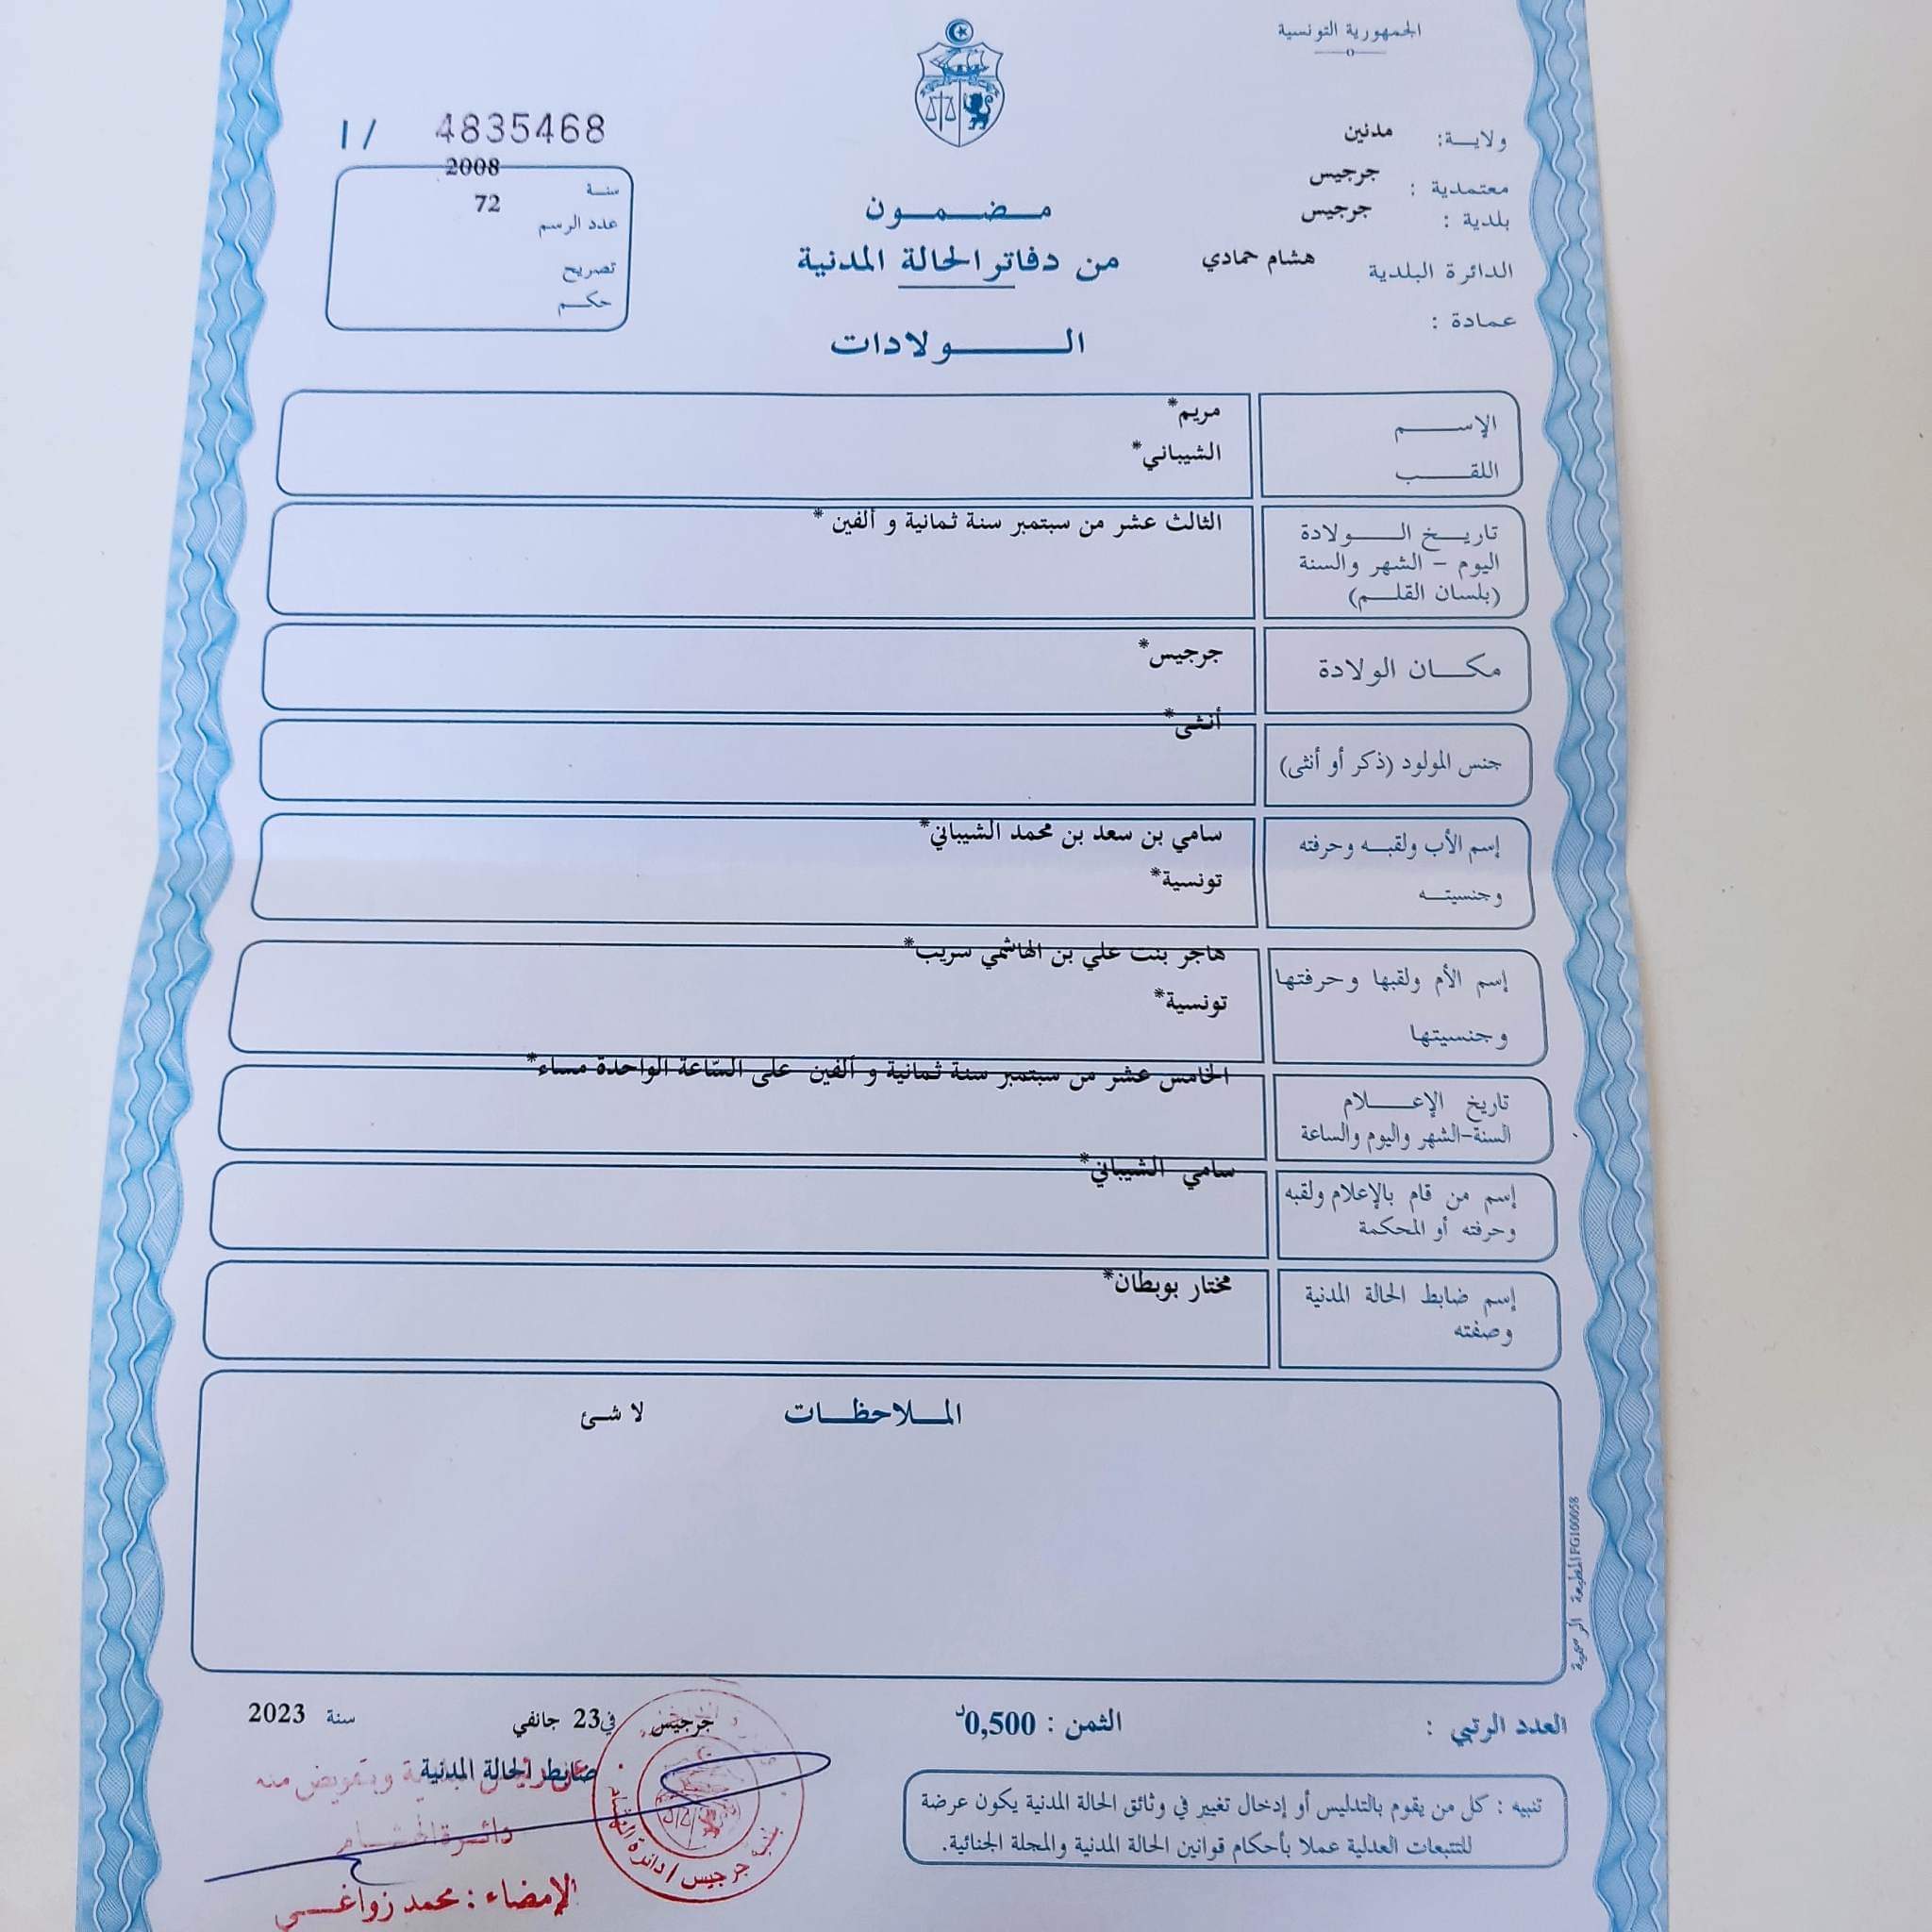 الجمهورية التونسية
ولاية: مدنين
معتمدية : جرجيس
بلدية : جرجيس
الدائرة البلدية هشام حمادي
عمادة :
مضمون
من دفاتر الحالة المدنية
الولادات
4835468 / 1
سنة 2008
عدد الرسم 72
تصريح
حكم
الإسم مريم*
اللقب الشيباني*
تاريخ الولادة الثالث عشر من سبتمبر سنة ثمانية و ألفين *
اليوم - الشهر والسنة
(بلسان القلم)
مكان الولادة جرجيس*
جنس المولود (ذكر أو أنثى) أنثى*
إسم الأب ولقبه وحرفته سامي بن سعد بن محمد الشيباني*
وجنسيته تونسية*
إسم الأم ولقبها وحرفتها هاجر بنت علي بن الهاشمي سريب*
وجنسيتها تونسية*
تاريخ الإعلام الخامس عشر من سبتمبر سنة ثمانية و ألفين على السّاعة الواحدة مساء*
السنة-الشهر واليوم والساعة
إسم من قام بالإعلام ولقبه سامي الشيباني*
وحرفته أو المحكمة
إسم ضابط الحالة المدنية مختار بوبطان*
وصفته
الملاحظات لا شئ
المطبعة الرسمية FG100658
العدد الرتبي :
الثمن : 0,500د
جرجيس في 23 جانفي سنة 2023
ضابط الحالة المدنية
وبتفويض منه
الإمضاء : محمد زواغي
جرجيس / دائرة
تنبيه : كل من يقوم بالتدليس أو إدخال تغيير في وثائق الحالة المدنية يكون عرضة
للتتبعات العدلية عملا بأحكام قوانين الحالة المدنية والمجلة الجنائية.